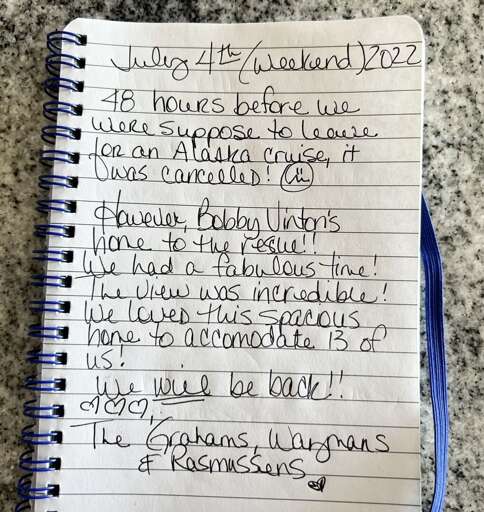 July 4th (weekend) 2022
48 hours before we
were suppose to leave
for an Alaska cruise, it
was cancelled!
However, Bobby Vinton's
home to the resue!!
We had a fabulous time!
The view was incredible!
We loved this spacious
home to accomodate 13 of
us!
We will be back!!
The Grahams, Wargmans
& Rasmussens